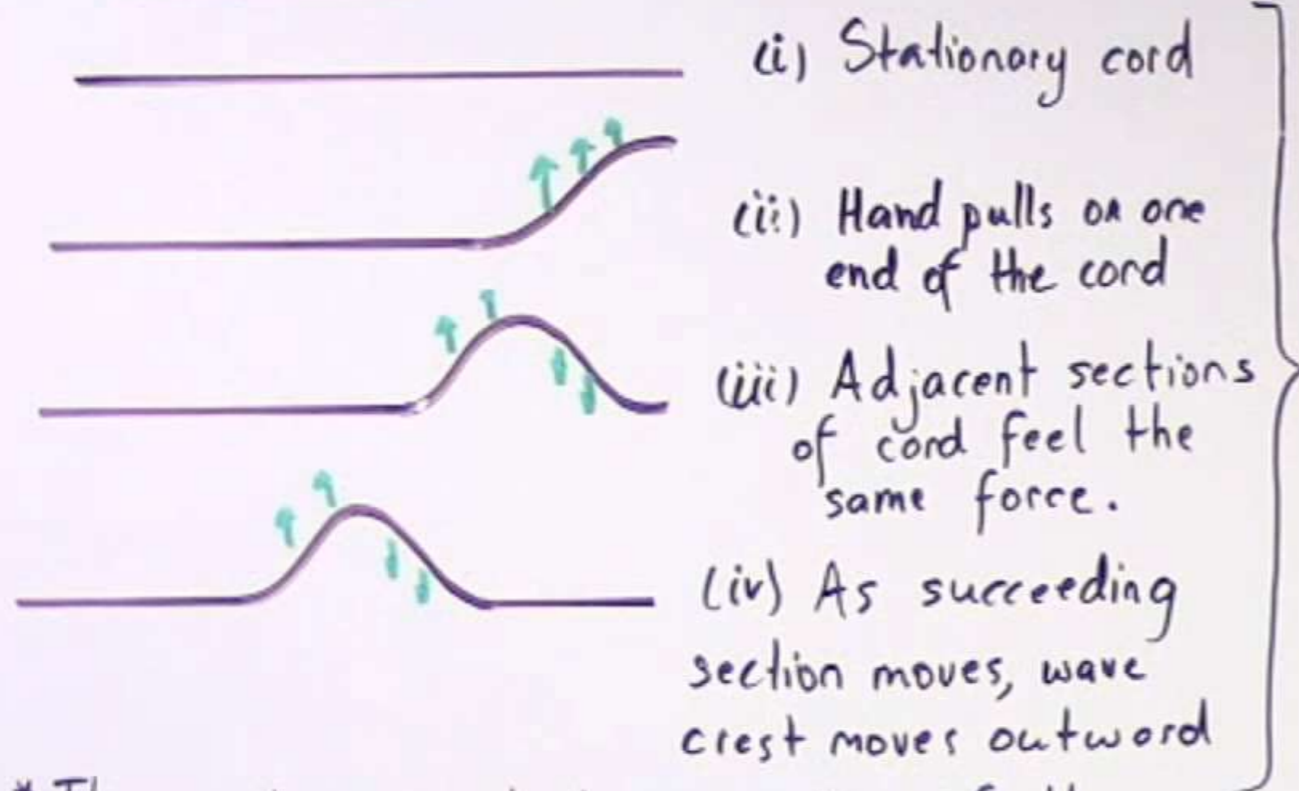 (i) Stationary cord
(ii) Hand pulls on one
end of the cord
(iii) Adjacent sections
of cord feel the
same force.
(iv) As succeeding
section moves, wave
crest moves outword